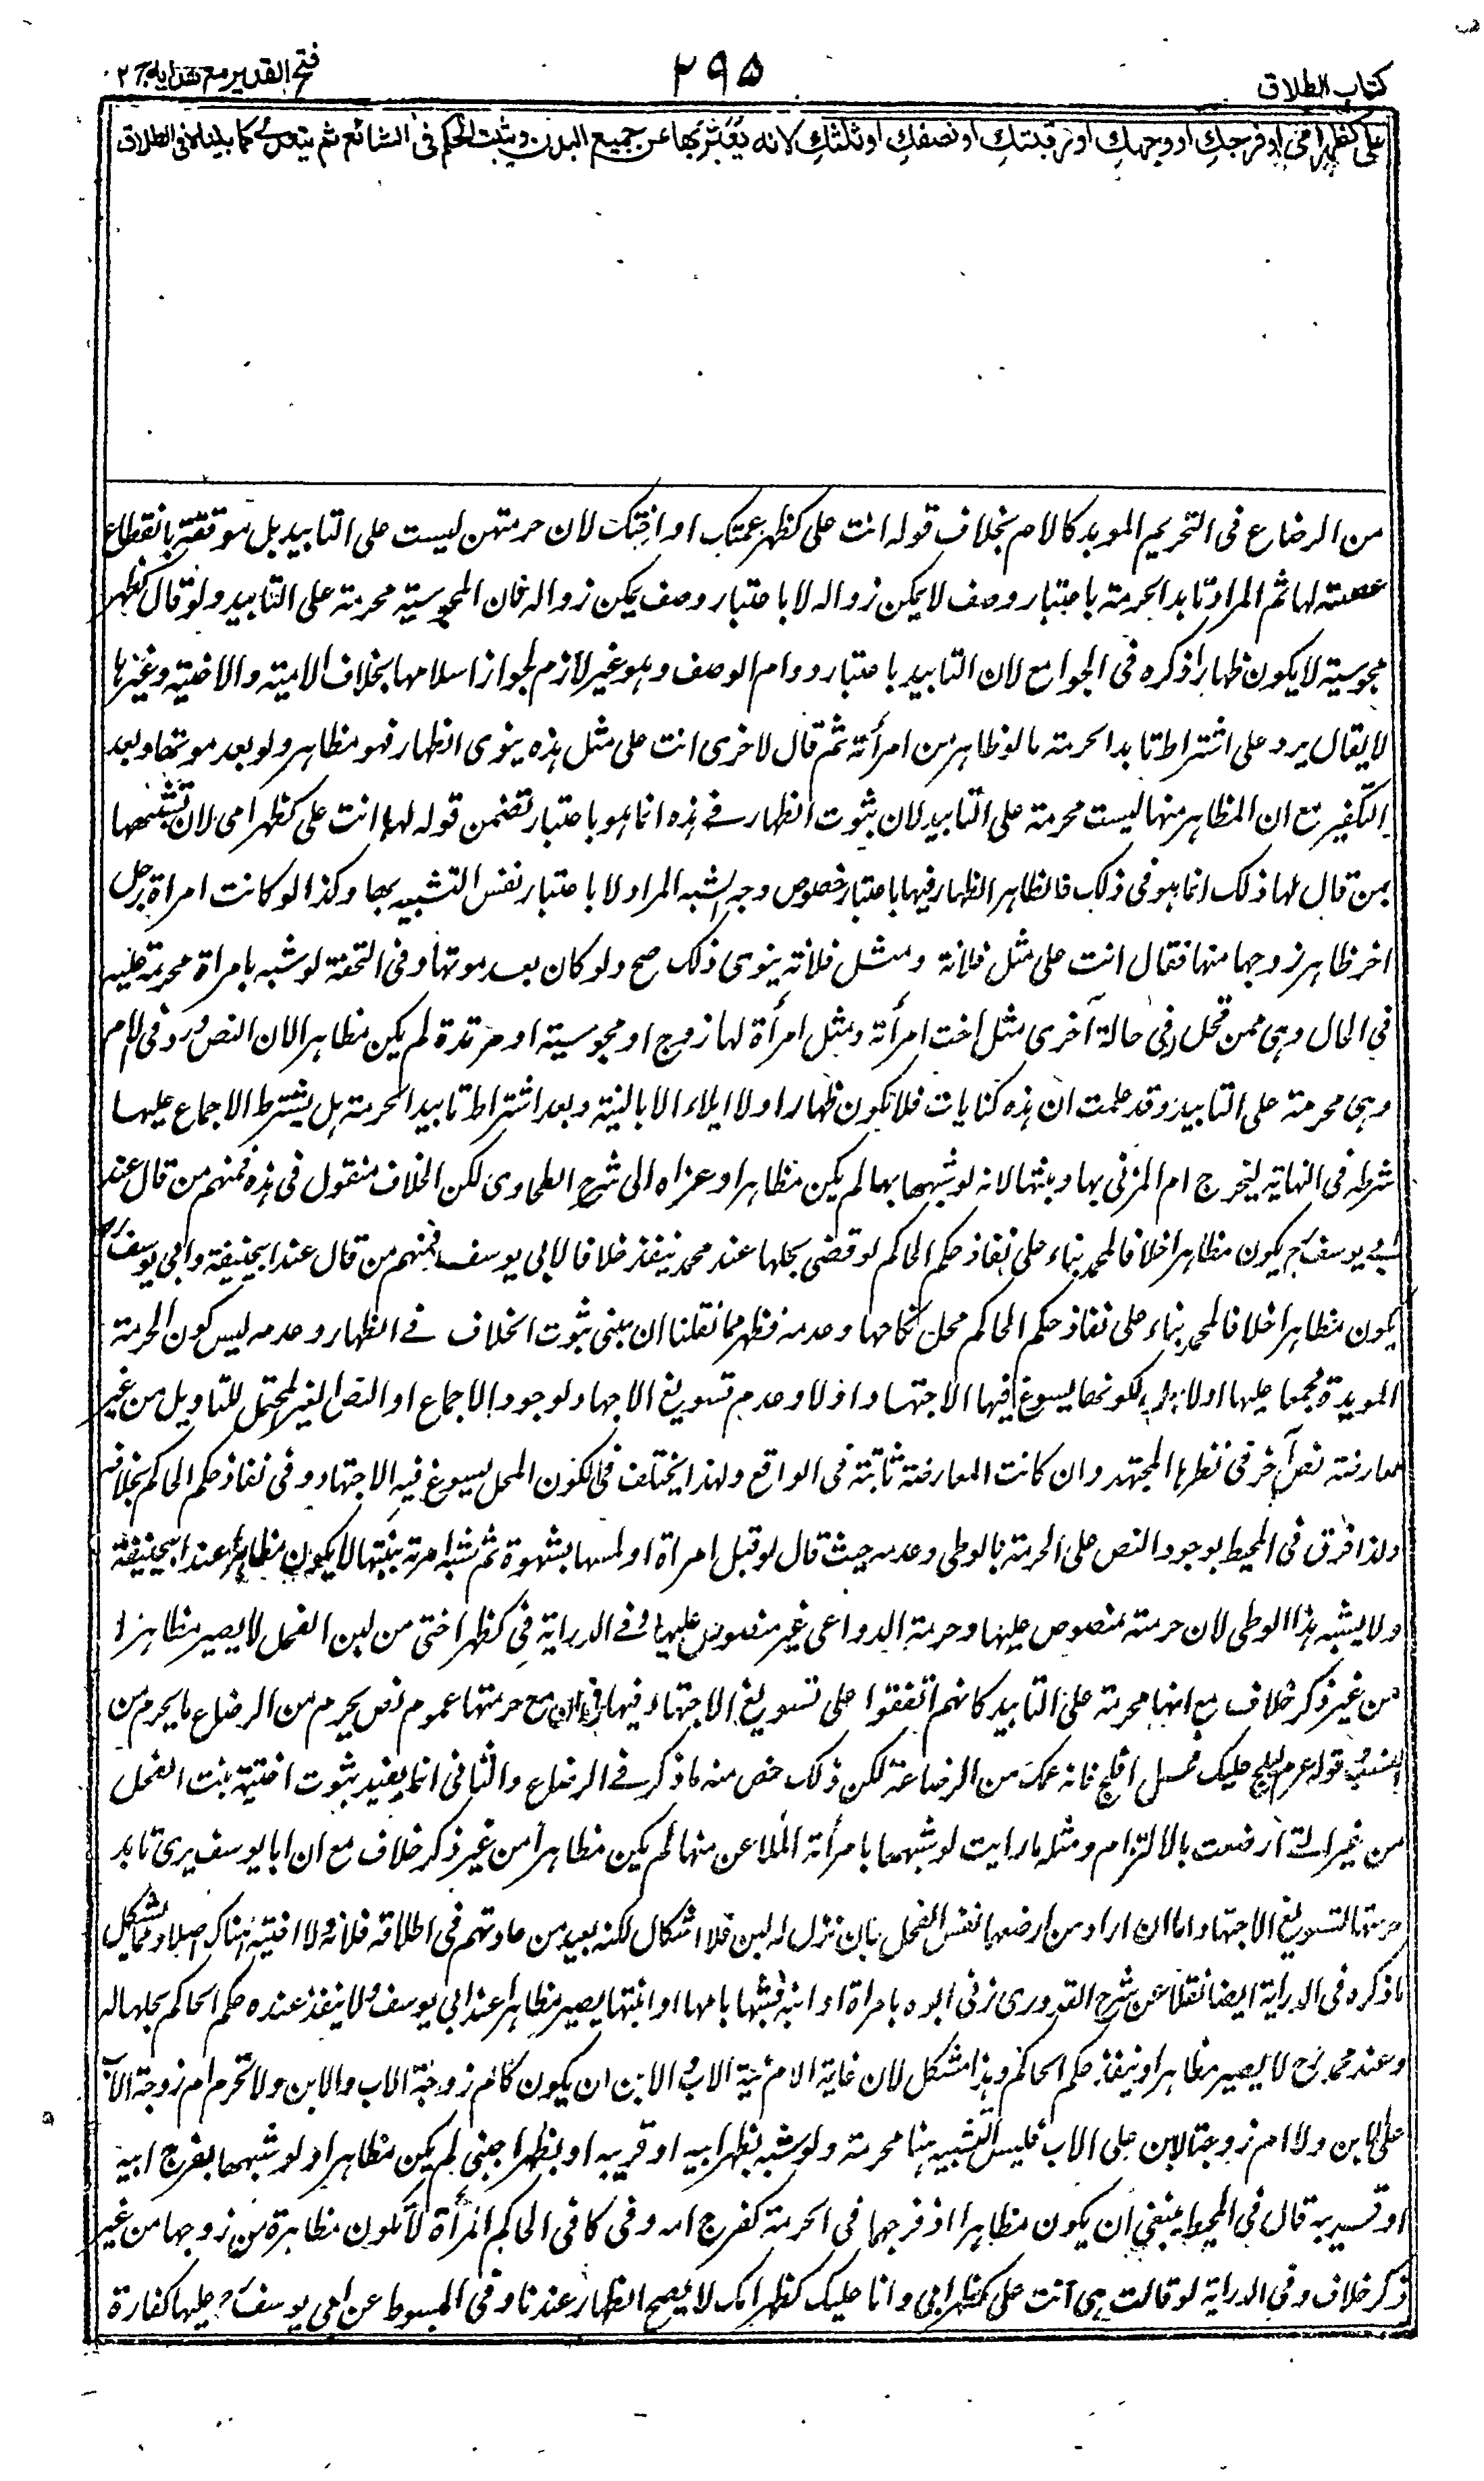 كتاب الطلاق
٢٩٥
فتح القدير مع هدايه ج٢
على كظهر امى او فرجكِ او وجهكِ او رقبتكِ او نصفكِ او ثلثكِ لانه يُعَبَّر بها عن جميع البدن ويثبت الحكم فى الشائع ثم يتعدى كما بيناه فى الطلاق
من الرضاع فى التحريم الموبد كالام بخلاف قوله انت على كظهر عمتك او اختك لان حرمتهن ليست على التابيد بل موقتة بانقطاع
عصمته لها ثم المراد تابد الحرمة باعتبار وصف لا يمكن زواله لا باعتبار وصف يمكن زواله فان المجوسية محرمة على التابيد ولو قال كظهر
مجوسية لا يكون ظهارا ذكره فى الجوامع لان التابيد باعتبار دوام الوصف وهو غير لازم لجواز اسلامها بخلاف الامية والاختية وغيرها
لا يقال يرد على اشتراط تابد الحرمة ما لو ظاهر من امرأته ثم قال لاخرى انت على مثل هذه ينوى الظهار فهو مظاهر ولو بعد موتها وبعد
التكفير مع ان المظاهر منها ليست محرمة على التابيد لان ثبوت الظهار فے هذه انما هو باعتبار تضمن قوله لها انت على كظهر امى لان تشبيهها
بمن قال لها ذلك انما هو فى ذلك فالظاهر الظهار فيها باعتبار خصوص وجه الشبه المراد لا باعتبار نفس التشبيه بها وكذا لو كانت امراة رجل
اخر ظاهر زوجها منها فقال انت على مثل فلانة ومثل فلانة ينوى ذلك صح ولو كان بعد موتها وفى التحفة لو شبه بامراة محرمة عليه
فى الحال وهى ممن تحل فى حالة آخرى مثل اخت امرأته ومثل امرأة لها زوج او مجوسية او مرتدة لم يكن مظاهرا لان النص ورد فى الام
وهى محرمة على التابيد وقد علمت ان هذه كنايات فلا تكون ظهارا ولا ايلاء الا بالنية وبعد اشتراط تابيد الحرمة هل يشترط الاجماع عليها
شرطه فى النهاية ليخرج ام المزنى بها وبنتها لانه لو شبهها بهما لم يكن مظاهرا وعزاه الى شرح الطحاوى لكن الخلاف منقول فى هذه فمنهم من قال عند
ابى يوسفؒ يكون مظاهرا خلافا لمحمد بناء على نفاذ حكم الحاكم لو قضى بحلها عند محمد ينفذ خلافا لابى يوسف فمنهم من قال عند ابيحنيفة وابى يوسفؒ
يكون مظاهرا خلافا لمحمد بناء على نفاذ حكم الحاكم محل نكاحها وعدمه فظهر مما نقلنا ان مبنى ثبوت الخلاف فے الظهار وعدمه ليس كون الحرمة
المويدة مجمعا عليها اولا بل كونها يسوغ فيها الاجتهاد اولا وعدم تسويغ الاجهاد لوجود الاجماع او النص الغير المحتمل للتاويل من غير
معارضة نص آخر فى نظر المجتهد وان كانت المعارضة ثابتة فى الواقع ولهذا يختلف فى كون المحل يسوغ فيه الاجتهاد وفى نفاذ حكم الحاكم بخلافه
ولذا فرق فى المحيط بوجود النص على الحرمة بالوطى وعدمه حيث قال لو قبل امراة او لمسها بشهوة ثم شبه امرته ببنتها لا يكون مظاهرا عند ابيحنيفة
ولا يشبه هذا الوطى لان حرمته منصوص عليها وحرمة الدواعى غير منصوص عليها وفے الدراية فى كظهر اختى من لبن الفحل لا يصير مظاهرا
من غير ذكر خلاف مع انها محرمة على التابيد كانهم اتفقوا على تسويغ الاجتهاد فيها مع حرمتها عموم نص يحرم من الرضاع ما يحرم من
النسب قوله عليك افلح فانه عمك من الرضاعة لكن ذلك خص منه ما ذكر فے الرضاع والثانى انما يفيد بثوت اختية بنت الفحل
من غير التے ارضعت بالالتزام ومثله ما رايت لو شبهها بامرأة الملاعن منها لم يكن مظاهرا من غير ذكر خلاف مع ان ابا يوسف يرى تابد
حرمتها لتسويغ الاجتهاد اما ان اراد من ارضعها نفس الفحل بان نزل له لبن فلا اشكال لكنه بعيد من عادتهم فى اطلاقه فلانه ولا اختية هناك اصلا ومما يشكل
ما ذكره فى الدراية ايضا نقلا عن شرح القدورى زنى ابوه بامراة او ابنه فشبهها بامها او ابنتها يصير مظاهرا عند ابى يوسف ولا ينفذ عنده حكم الحاكم بحلها له
وعند محمدؒ لا يصير مظاهرا وينفذ حكم الحاكم وهذا مشكل لان غاية الام مزنية الاب والابن ان يكون كام زوجة الاب والابن ولا تحرم ام زوجة الاب
على الابن ولا ام زوجة الابن على الاب فليس التشبيه هنا محرمة ولو شبه بظهر ابيه او قريبه او بظهر اجنبى لم يكن مظاهرا ولو شبهها بفرج ابيه
او قريبه قال فى المحيط ينبغى ان يكون مظاهرا اذ فرجهما فى الحرمة كفرج امه وفى كافى الحاكم المرأة لا تكون مظاهرة من زوجها من غير
ذكر خلاف وفى الدراية لو قالت هى انت على كظهر ابى وانا عليك كظهر امك لا يصح الظهار عندنا وفى المبسوط عن ابى يوسفؒ عليها كفارة